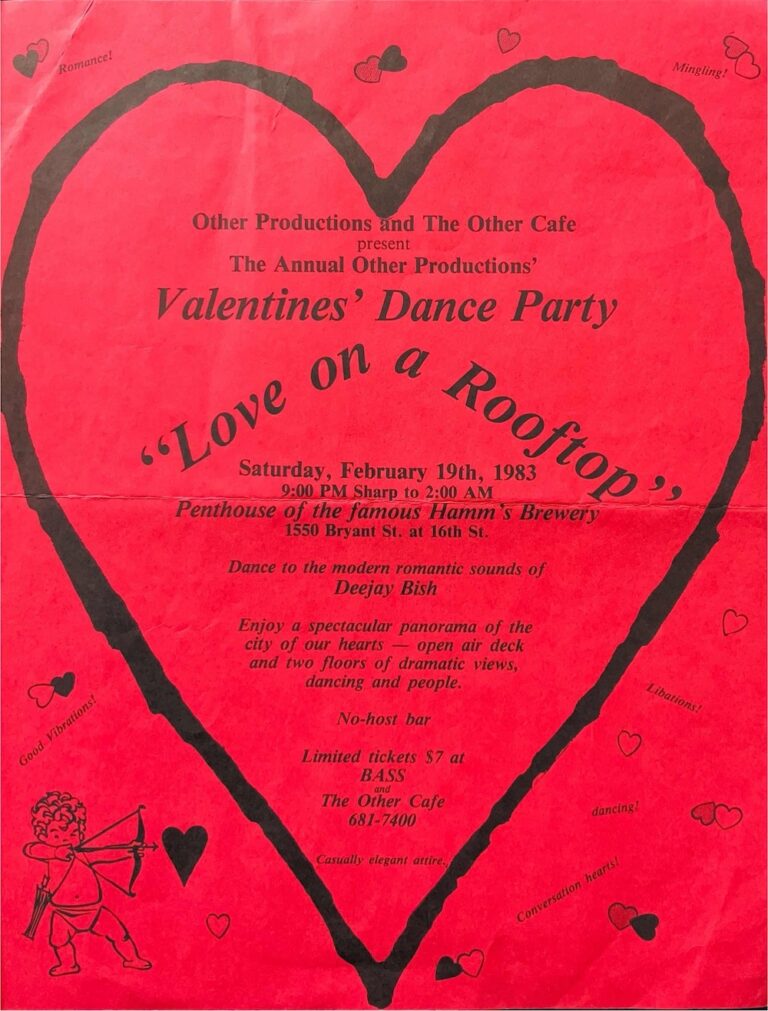 Romance!
Mingling!
Other Productions and The Other Cafe
present
The Annual Other Productions'
Valentines' Dance Party
"Love on a Rooftop"
Saturday, February 19th, 1983
9:00 PM Sharp to 2:00 AM
Penthouse of the famous Hamm's Brewery
1550 Bryant St. at 16th St.
Dance to the modern romantic sounds of
Deejay Bish
Enjoy a spectacular panorama of the
city of our hearts — open air deck
and two floors of dramatic views,
dancing and people.
No-host bar
Limited tickets $7 at
BASS
and
The Other Cafe
681-7400
Casually elegant attire.
Good Vibrations!
Libations!
dancing!
Conversation hearts!